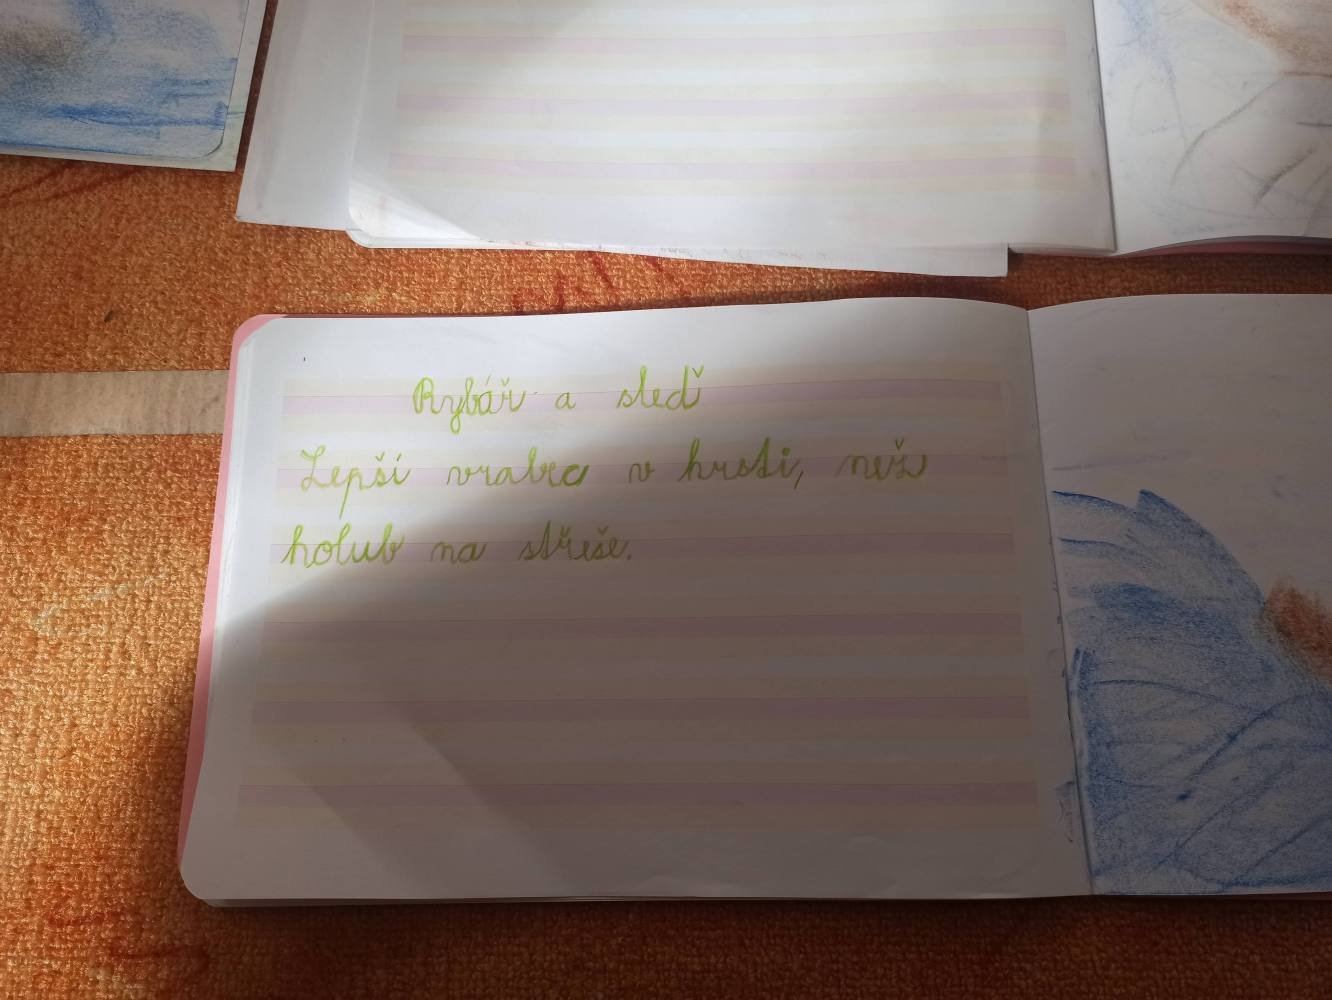 Rybář a sleď
Lepší vrabec v hrsti, než
holub na střeše.